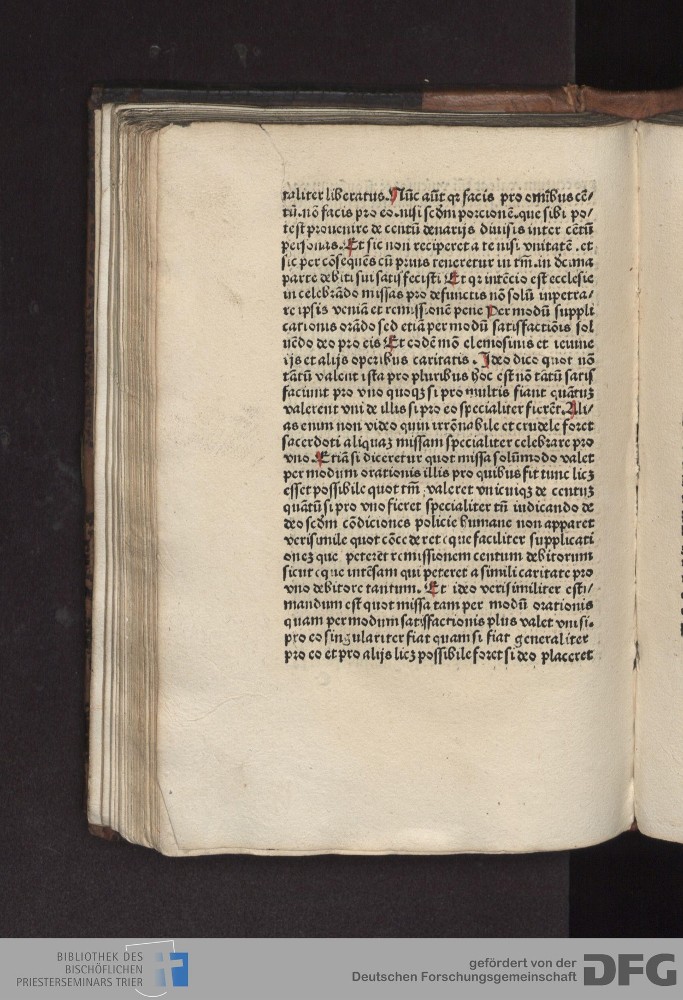 taliter liberatus. Nūc aūt qꝛ facis pro omībus cē⸗
tū. nō facis pro eo. nisi scdm porcionē. que sibi po⸗
test prouenire de centū denarijs diuisis inter cētū
personas. Et sic non reciperet a te nisi vnitatē. et
sic per cōsequēs cū prius teneretur in tm̄. in dc̄ima
parte debiti sui satisfecisti Et qꝛ intēcio est ecclesie
in celebrādo missas pro defunctis nō solū inpetra⸗
re ipsis veniā et remissionē pene Per modū suppli
cationis orādo sed etiā per modū satisfactiōis sol
uēdo deo pro eis Et eodē mō elemosinis et ieiune
ijs et alijs operibus caritatis. Ideo dico quot nō
tātū valent ista pro pluribus hoc est nō tātū satis
faciunt pro vno quoqꝫ si pro multis fiant quātuꝫ
valerent vni de illis si pro eo specialiter fierēt. Ali⸗
as enim non video quin irrōnabile et crudele foret
sacerdoti aliquaꝫ missam specialiter celebrare pro
vno. Etiā si diceretur quot missa solūmodo valet
per modum orationis illis pro quibus fit tunc licꝫ
esset possibile quot tm̄ valeret vnicuiqꝫ de centuꝫ
quātū si pro vno fieret specialiter tn̄ iudicando de
deo scdm cōdiciones policie humane non apparet
verisimile quot cōcederet eque faciliter supplicati
oneꝫ que peterēt remissionem centum debitorum
sicut eque intēsam qui peteret a simili caritate pro
vno debitore tantum. Et ideo verisimiliter esti⸗
mandum est quot missa tam per modū orationis
quam per modum satisfactionis plus valet vni si.
pro eo singulariter fiat quam si fiat generaliter
pro eo et pro alijs licꝫ possibile foret si deo placeret
BIBLIOTHEK DES
BISCHÖFLICHEN
PRIESTERSEMINARS TRIER
gefördert von der
Deutschen Forschungsgemeinschaft
DFG